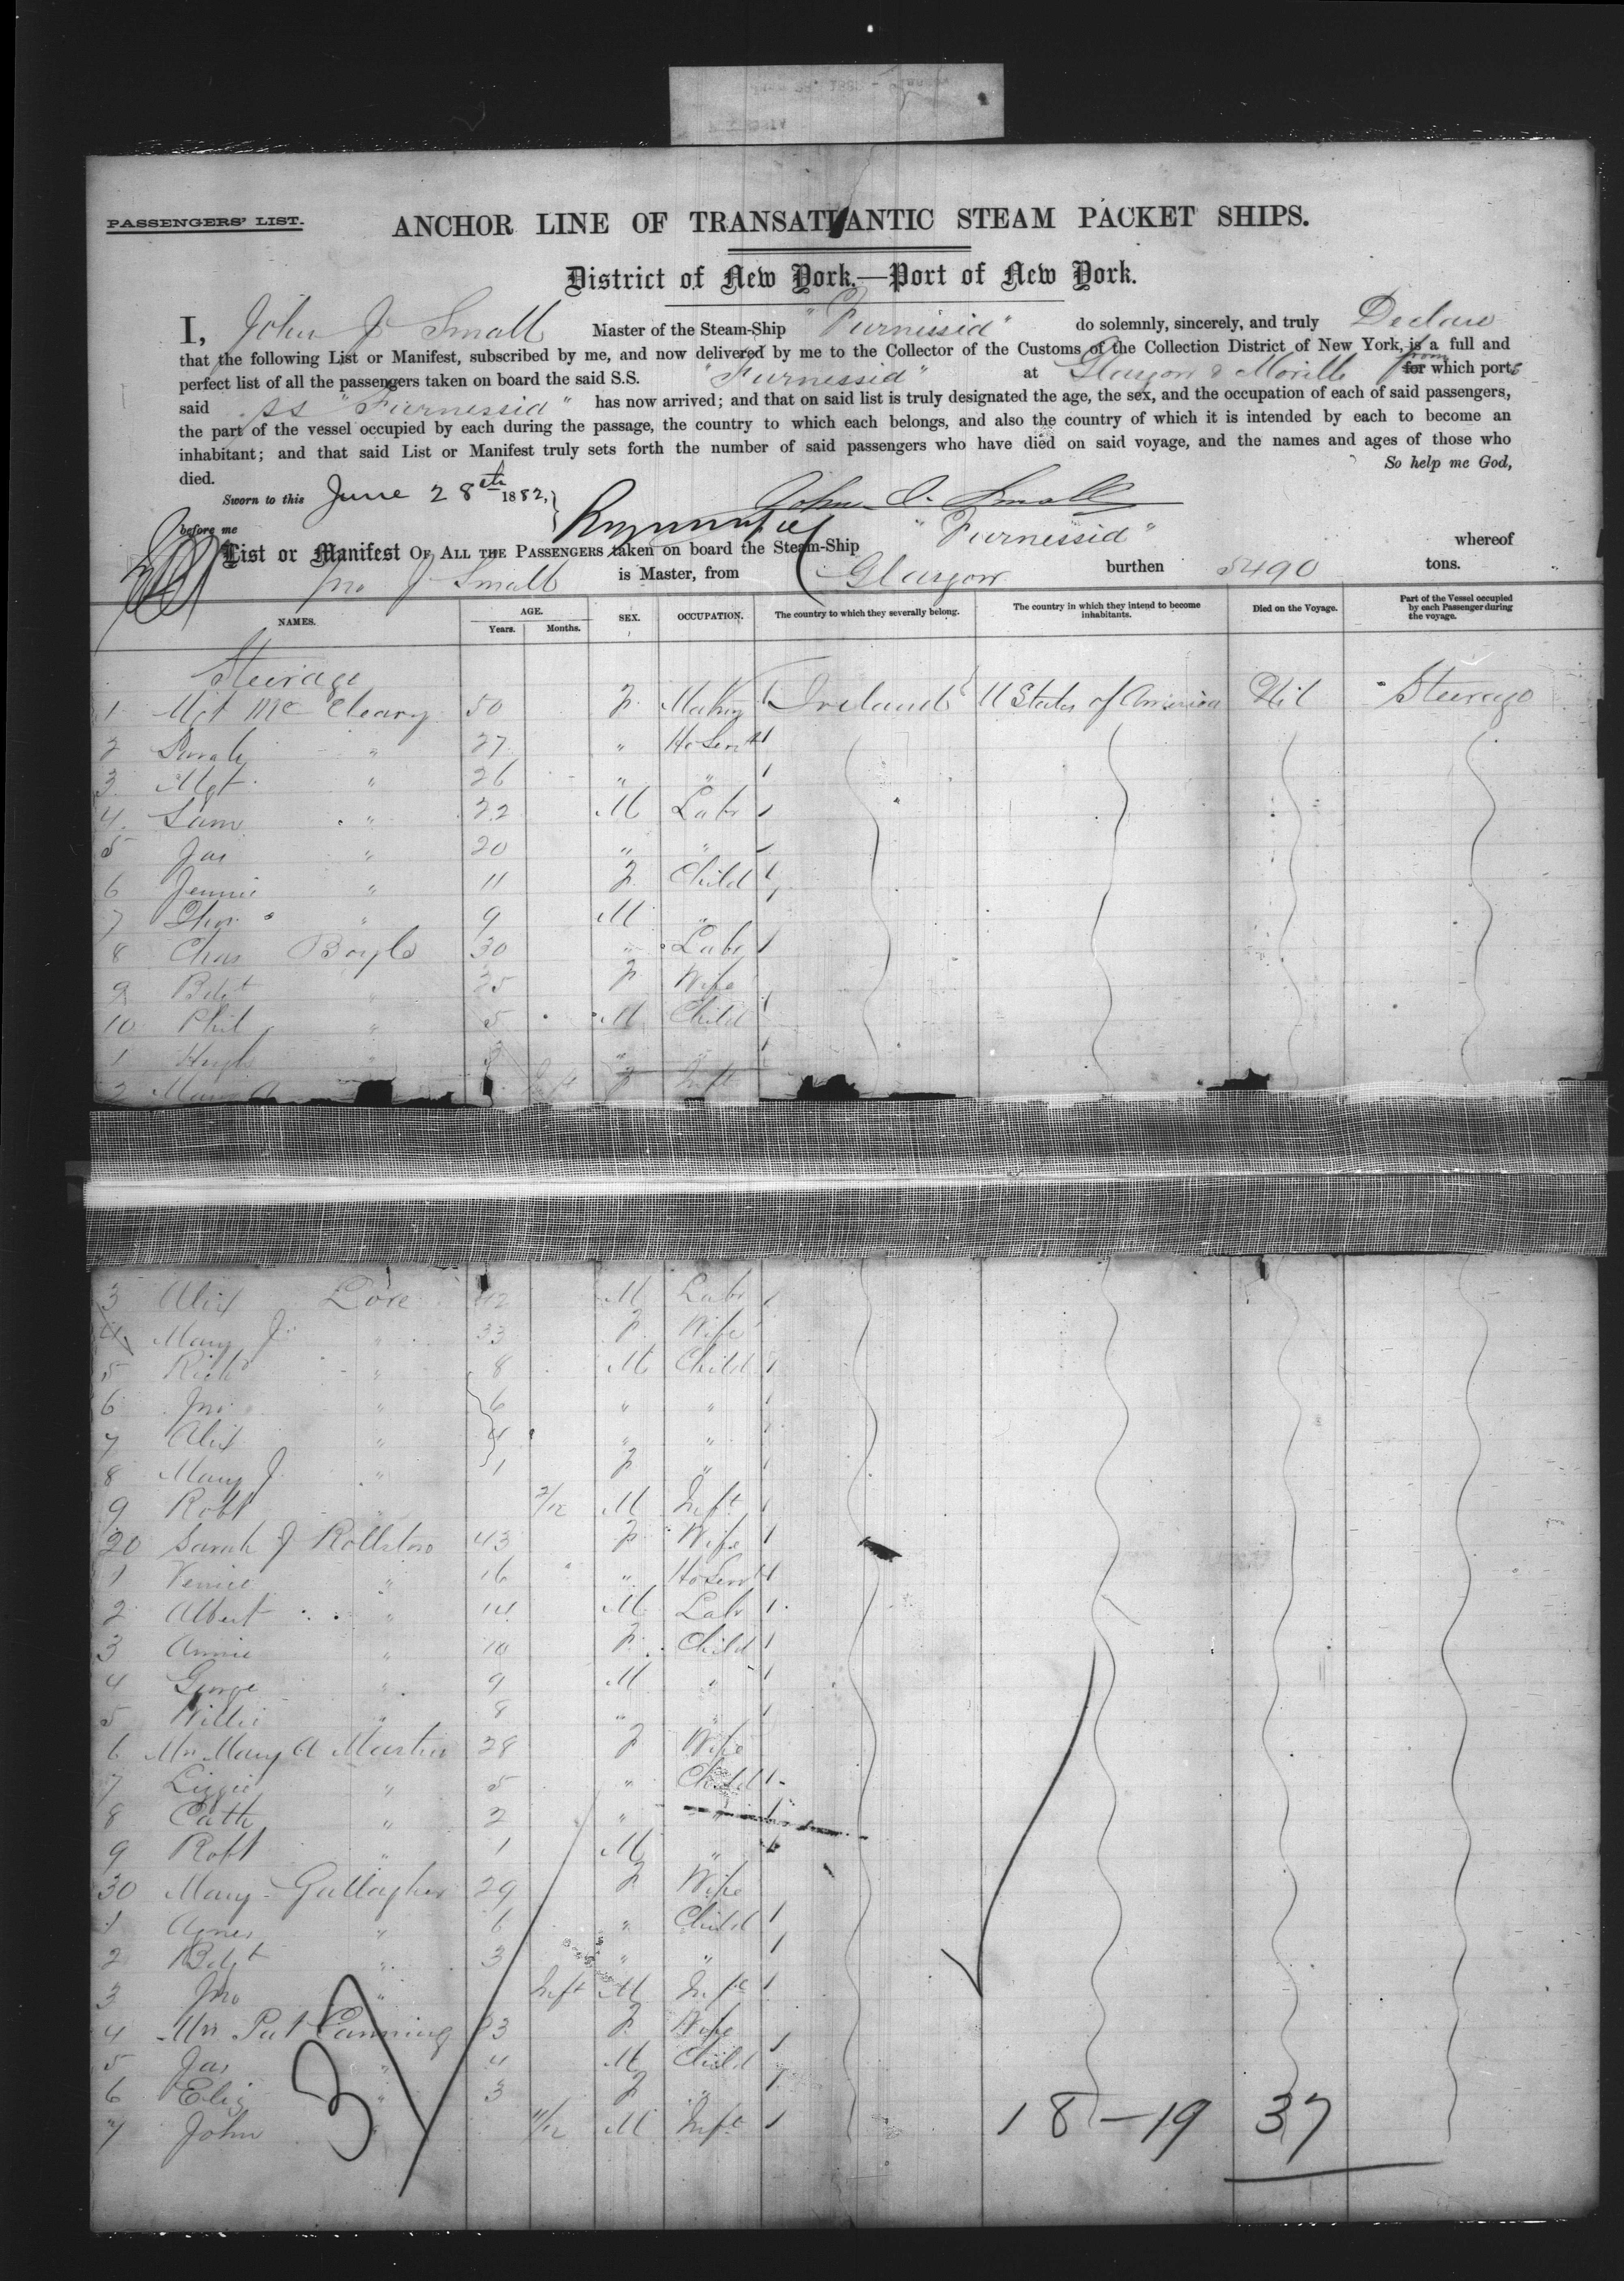 PASSENGERS' LIST.
ANCHOR LINE OF TRANSATLANTIC STEAM PACKET SHIPS.
District of New York.—Port of New York.
I, John J Small Master of the Steam-Ship "Furnessia" do solemnly, sincerely, and truly Declare
that the following List or Manifest, subscribed by me, and now delivered by me to the Collector of the Customs of the Collection District of New York, is a full and
perfect list of all the passengers taken on board the said S.S. "Furnessia" at Glasgow & Moville from for which ports
said SS "Furnessia" has now arrived; and that on said list is truly designated the age, the sex, and the occupation of each of said passengers,
the part of the vessel occupied by each during the passage, the country to which each belongs, and also the country of which it is intended by each to become an
inhabitant; and that said List or Manifest truly sets forth the number of said passengers who have died on said voyage, and the names and ages of those who
died. So help me God,
Sworn to this June 28th 1882,
before me
List or Manifest OF ALL THE PASSENGERS taken on board the Steam-Ship "Furnessia" whereof
Jno J Small is Master, from Glasgow burthen 5490 tons.
NAMES. AGE. Years. Months. SEX. OCCUPATION. The country to which they severally belong. The country in which they intend to become inhabitants. Died on the Voyage. Part of the Vessel occupied by each Passenger during the voyage.
Steerage
1 Mgt Mc Cleary 50 F Ireland U States of America Nil Steerage
2 Sarah " 27 " Ho Servt
3 Mgt " 26 " "
4 Sam " 22 M Labr
5 Jas " 20 " "
6 Jennie " 11 F Child
7 " 9 M "
8 Chas Boyle 30 " Labr
9 Bdgt " 25 F Wife
10 Phil " 5 M Child
1 Hugh " "
2 Mary A Inft F Inft
3 Alex 42 M Labr
4 Mary J " 33 F Wife
5 Richd " 8 M Child
6 Jno " 6 " "
7 Alex " 4 " "
8 Mary J " 1 F "
9 Robt " 2/12 M Inft
20 Sarah J Rollston 43 F Wife
1 " 16 " Ho Servt
2 Albert " 14 M Labr
3 Annie " 10 F Child
4 George " 9 M "
5 Willie " 8 " "
6 Mrs Mary A Martin 28 F Wife
7 Lizzie " 5 " Child
8 Cath " 2 "
9 Robt " 1 M "
30 Mary Gallagher 29 F Wife
1 Agnes " 6 " Child
2 Bdgt " 3 " "
3 Jno " Inft M Inft
4 Mrs Pat Canning 33 F Wife
5 Jas " 4 M Child
6 Eliz " 3 F "
7 John " 11/12 M Inft
37
18-19 37